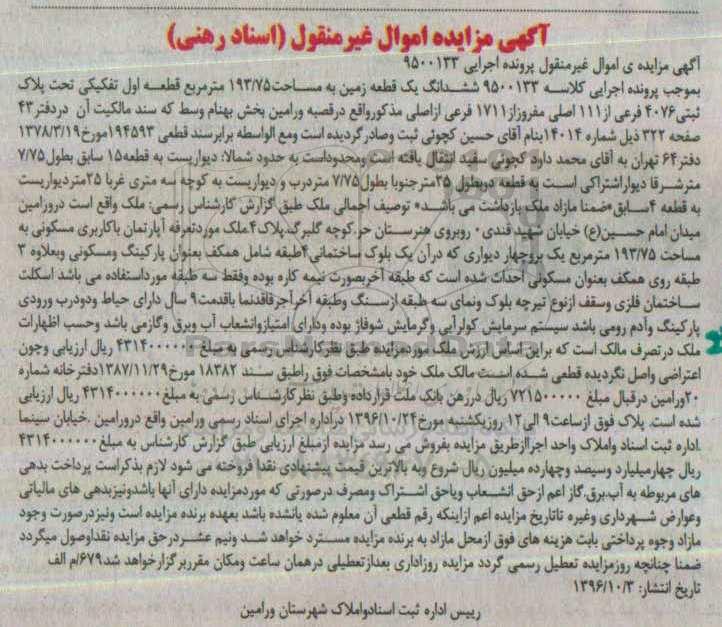 آگهی مزایده اموال غیرمنقول (اسناد رهنی)
آگهی مزایده ی اموال غیرمنقول پرونده اجرایی ۹۵۰۰۱۳۳
بموجب پرونده اجرایی کلاسه ۹۵۰۰۱۳۳ ششدانگ یک قطعه زمین به مساحت۱۹۳/۷۵ مترمربع قطعه اول تفکیکی تحت پلاک
ثبتی۴۰۷۶ فرعی از۱۱۱ اصلی مفروزاز۱۷۱۱ فرعی ازاصلی مذکورواقع درقصبه ورامین بخش بهنام وسط که سند مالکیت آن دردفتر۴۳
صفحه ۳۲۲ ذیل شماره ۱۴۰۱۴بنام آقای حسین کچوئی ثبت وصادرگردیده است ومع الواسطه برابرسند قطعی ۱۹۴۵۹۳مورخ۱۳۷۸/۳/۱۹
دفتر۶۴ تهران به آقای محمد دارد کچوئی سفید انتقال یافته است ومحدوداست به حدود شمالا: دیواریست به قطعه۱۵ سابق بطول۷/۷۵
مترشرقا دیواراشتراکی است به قطعه دوبطول ۲۵مترجنوبا بطول۷/۷۵ متردرب و دیواریست به کوچه سه متری غربا ۲۵متردیواریست
به قطعه ۴سابق*ضمنا مازاد ملک بازداشت می باشد* توصیف اجمالی ملک طبق گزارش کارشناس رسمی: ملک واقع است درورامین
میدان امام حسین(ع) خیابان شهید قندی ۰ روبروی هنرستان حر.کوچه گلبرگ.پلاک۴.ملک موردتعرفه آپارتمان باکاربری مسکونی به
مساحت ۱۹۳/۷۵ مترمربع یک بروچهار دیواری که درآن یک بلوک ساختمانی۴طبقه شامل همکف بعنوان پارکینگ ومسکونی وبعلاوه ۳
طبقه روی همکف بعنوان مسکونی احداث شده است که طبقه آخربصورت نیمه کاره بوده وفقط سه طبقه مورداستفاده می باشد اسکلت
ساختمان فلزی وسقف ازنوع تیرچه بلوک ونمای سه طبقه ازسنگ وطبقه آخرآجرفاقدنما باقدمت۹ سال دارای حیاط ودودرب ورودی
پارکینگ وآدم رومی باشد سیستم سرمایش کولرآبی وگرمایش شوفاژ بوده ودارای امتیازوانشعاب آب وبرق وگازمی باشد وحسب اظهارات
ملک درتصرف مالک است که براین اساس ارزش ملک موردمزایده طبق نظرکارشناس رسمی به مبلغ ۴۳۱۴۰۰۰۰۰۰ ریال ارزیابی وچون
اعتراضی واصل نگردیده قطعی شده است مالک ملک خود بامشخصات فوق راطبق سند ۱۸۳۸۲ مورخ۱۳۸۷/۱۱/۲۹دفترخانه شماره
۲۰ورامین درقبال مبلغ ۷۲۱۵۰۰۰۰۰ ریال دررهن بانک ملت قرارداده وطبق نظرکارشناس رسمی به مبلغ۴۳۱۴۰۰۰۰۰۰ ریال ارزیابی
شده است. پلاک فوق ازساعت۹ الی۱۲ روزیکشنبه مورخ۱۳۹۶/۱۰/۲۴ دراداره اجرای اسناد رسمی ورامین واقع درورامین .خیابان سینما
.اداره ثبت اسناد واملاک واحد اجراازطریق مزایده بفروش می رسد مزایده ازمبلغ ارزیابی طبق گزارش کارشناس به مبلغ۴۳۱۴۰۰۰۰۰۰
ریال چهارمیلیارد وسیصد وچهارده میلیون ریال شروع وبه بالاترین قیمت پیشنهادی نقدا فروخته می شود لازم بذکراست پرداخت بدهی
های مربوطه به آب.برق.گاز اعم ازحق انشعاب ویاحق اشتراک ومصرف درصورتی که موردمزایده دارای آنها باشدونیزبدهی های مالیاتی
وعوارض شهرداری وغیره تاتاریخ مزایده اعم ازاینکه رقم قطعی آن معلوم شده یانشده باشد بعهده برنده مزایده است ونیزدرصورت وجود
مازاد وجوه پرداختی بابت هزینه های فوق ازمحل مازاد به برنده مزایده مسترد خواهد شد ونیم عشردرحق مزایده نقداوصول میگردد
ضمنا چنانچه روزمزایده تعطیل رسمی گردد مزایده روزاداری بعدازتعطیلی درهمان ساعت ومکان مقرربرگزارخواهد شد۶۷۹/م الف
تاریخ انتشار: ۱۳۹۶/۱۰/۳
رییس اداره ثبت اسنادواملاک شهرستان ورامین